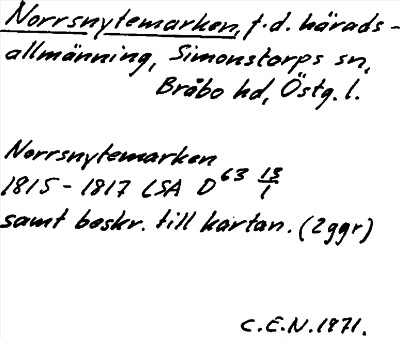 Norrsnytemarken, f.d. härads-
allmänning, Simonstorps sn,
Bråbo hd, Östg. l.
Norrsnytemarken
1815-1817 LSA D 63 13/1
samt beskr. till kartan. (2ggr)
C.E.N. 1971.